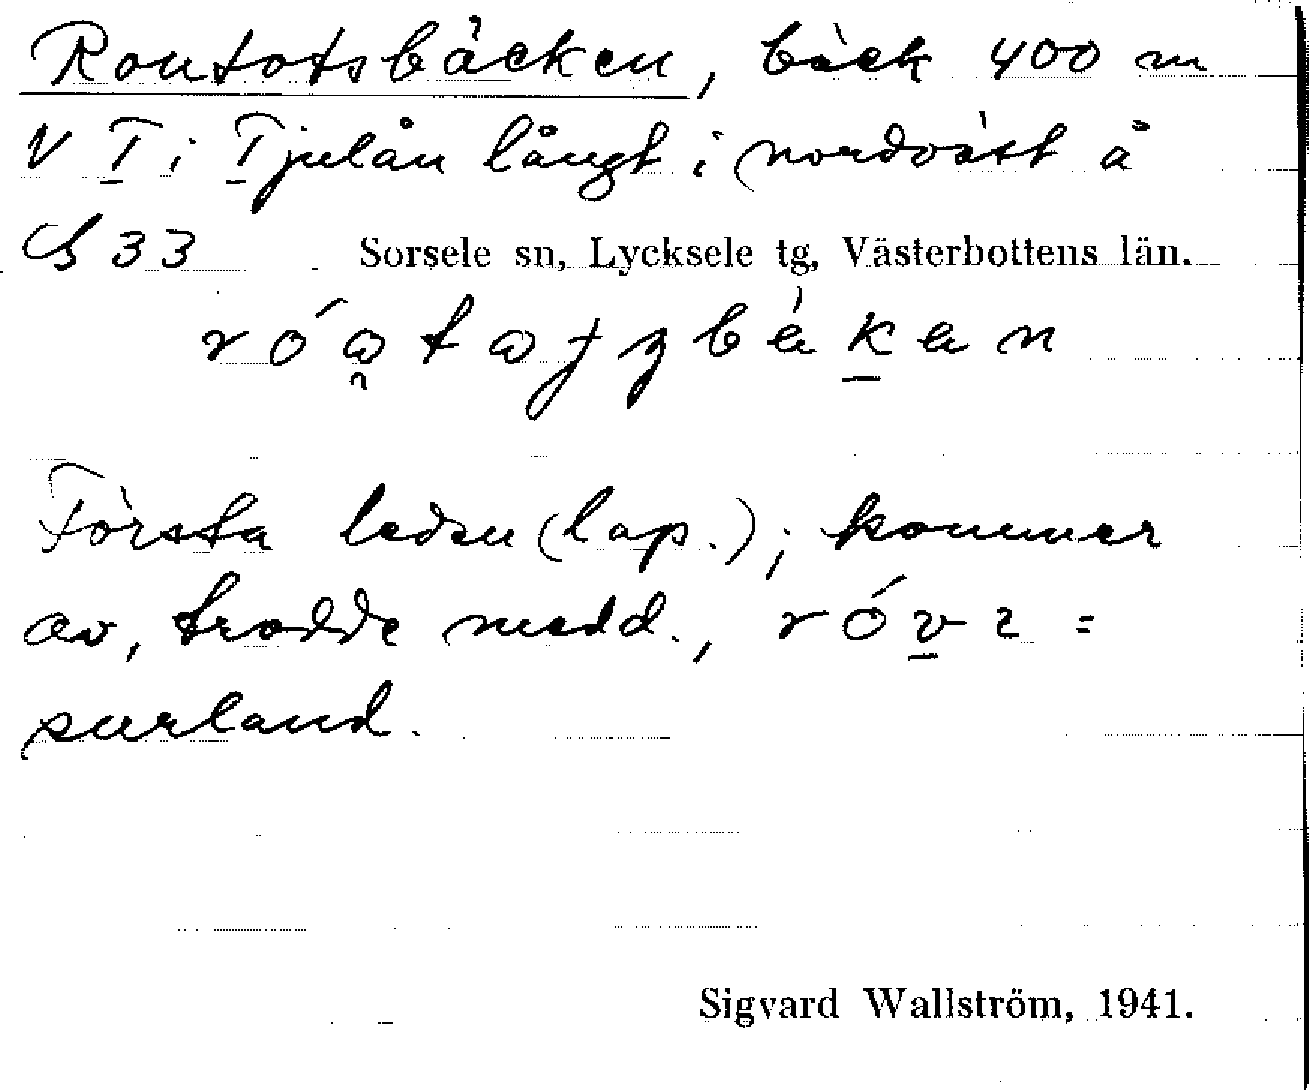 Routotsbäcken, bäck 400 m
V T i Tjulån långt i nordväst å
S 33 Sorsele sn, Lycksele tg, Västerbottens län.
Första leden (lap.); kommer
av, trodde medd., =
surland.
Sigvard Wallström, 1941.